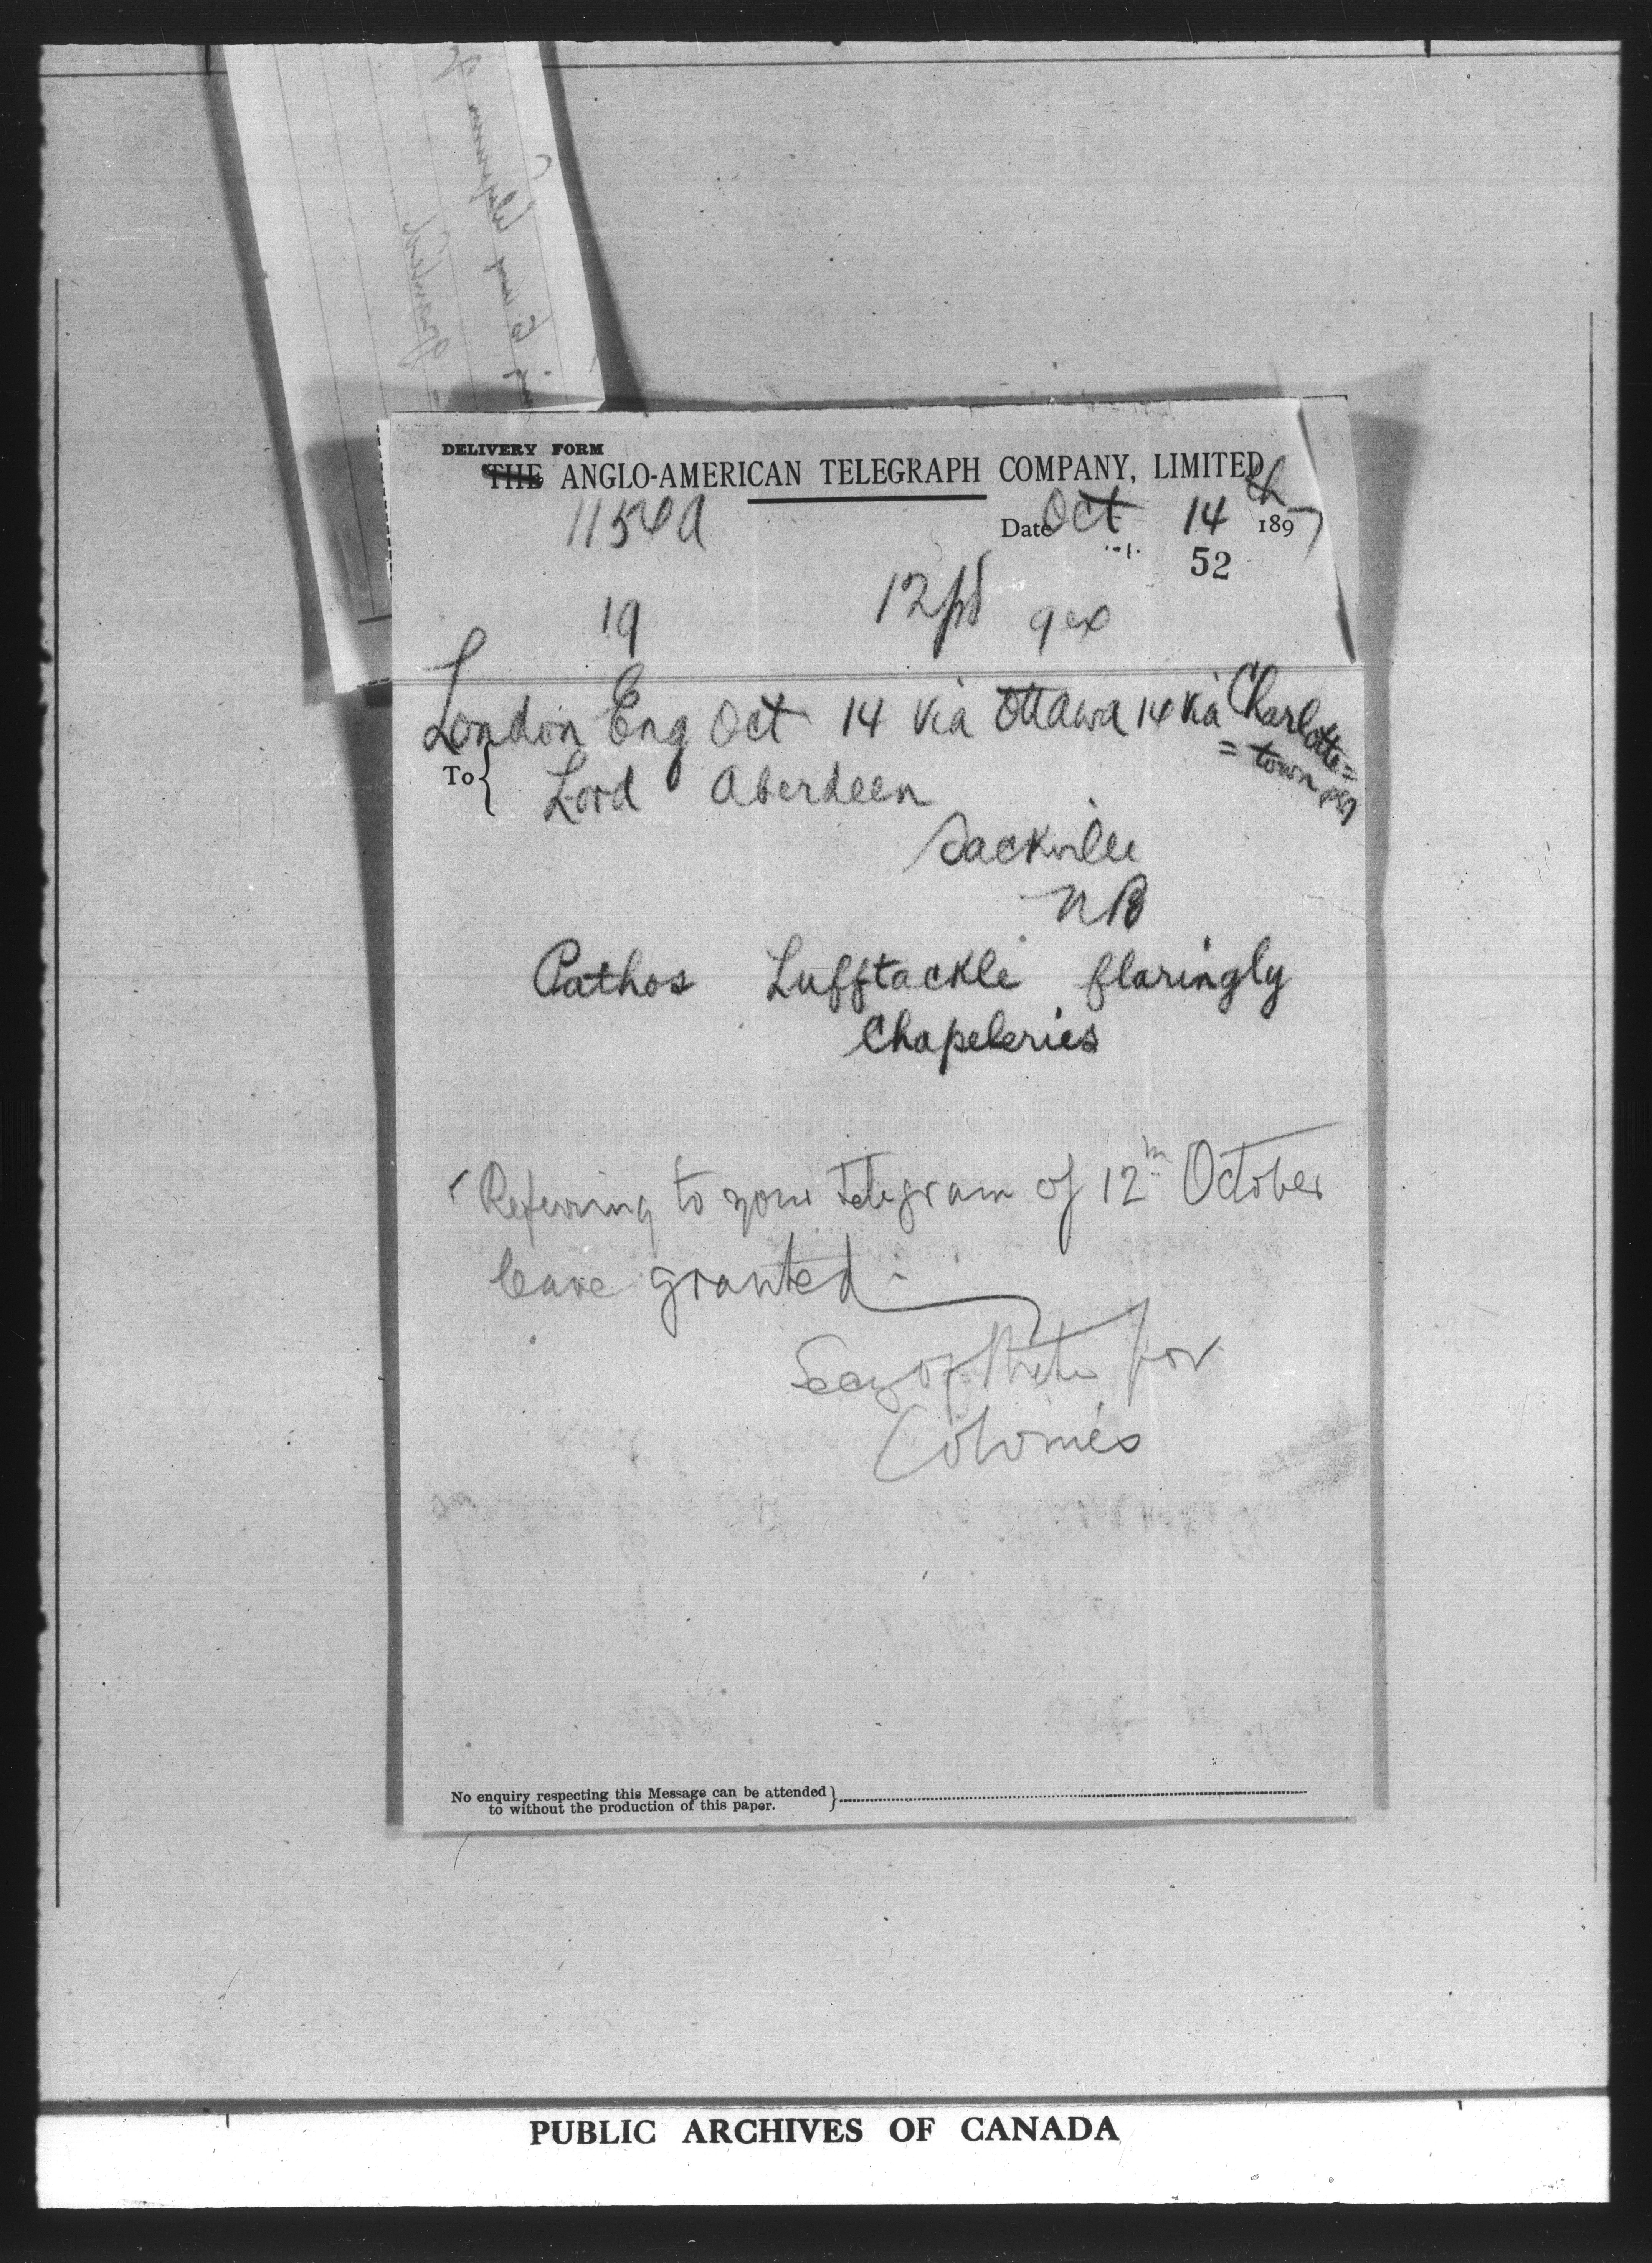 DELIVERY FORM
THE ANGLO-AMERICAN TELEGRAPH COMPANY, LIMITED
1154a Date Oct 14th 1897
52
19 12pd 9ex
London Eng Oct 14 via Ottawa 14 via Charlotte=
= town PEI
To Lord Aberdeen
Sackville
NB
Pathos Lufftackle flaringly
Chapeleries
Referring to your telegram of 12th October
leave granted.
Secy of State for
Colonies
No enquiry respecting this Message can be attended
to without the production of this paper.
PUBLIC ARCHIVES OF CANADA